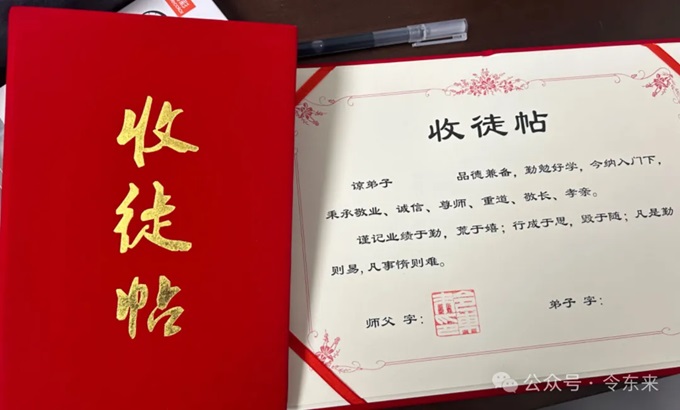 收徒帖
收徒帖
谅弟子 品德兼备，勤勉好学，今纳入门下，
秉承敬业、诚信、尊师、重道、敬长、孝亲。
谨记业绩于勤，荒于嬉；行成于思，毁于随；凡是勤
则易，凡事惰则难。
师父 字：
弟子 字：
公众号·令东来